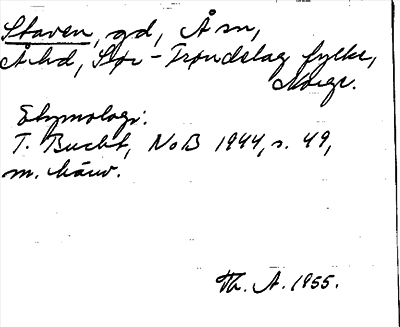 Staven, gd, Å sn,
Åhd, Sør-Trøndelag fylke,
Norge.
Etymologi:
T. Bucht, NoB 1944, s. 49,
m. hänv.
Th. A. 1955.